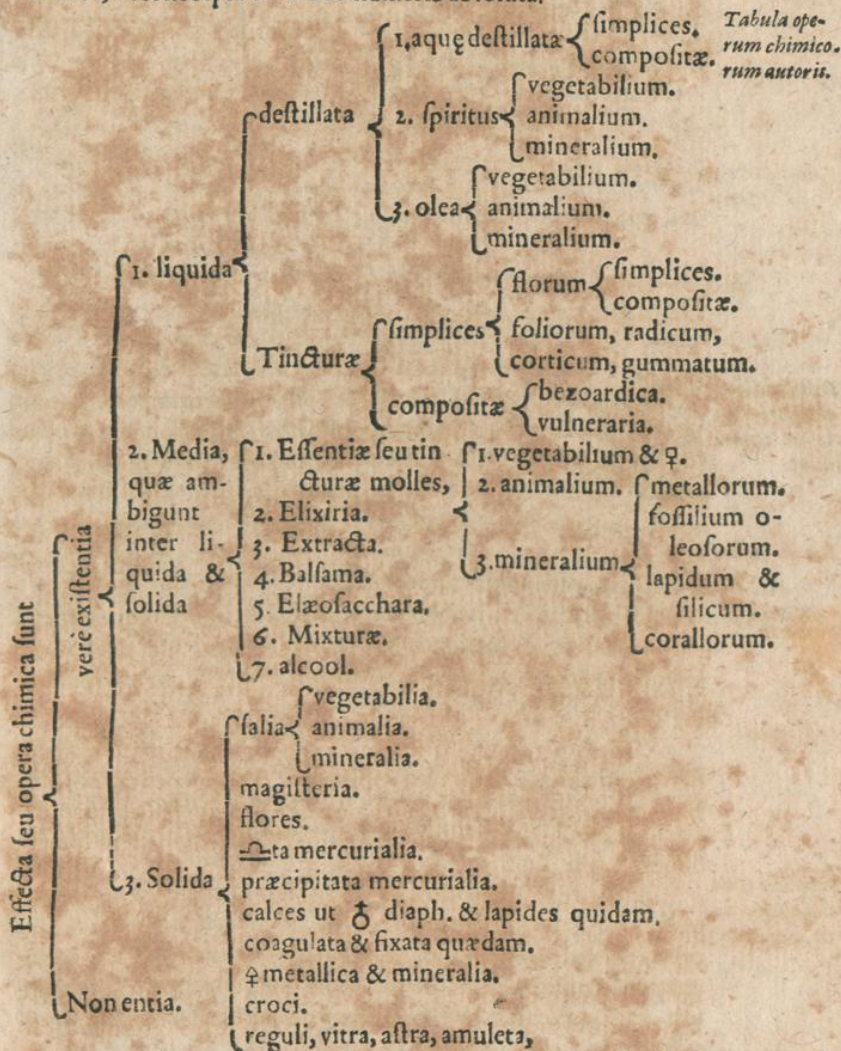 Tabula ope-
rum chimico-
rum autoris.
Effecta ſeu opera chimica ſunt
verè exiſtentia
1. liquida
deſtillata
1. aquę deſtillatæ
ſimplices.
compoſitæ.
2. ſpiritus
vegetabilium.
animalium.
mineralium.
3. olea
vegetabilium.
animalium.
mineralium.
Tincturæ
ſimplices
florum
ſimplices.
compoſitæ.
foliorum, radicum,
corticum, gummatum.
compoſitæ
bezoardica.
vulneraria.
2. Media,
quæ am-
bigunt
inter li-
quida &
ſolida
1. Eſſentiæ ſeu tin
cturæ molles,
1. vegetabilium & ♀.
2. animalium.
3. mineralium
metallorum.
foſſilium o-
leoſorum.
lapidum &
ſilicum.
corallorum.
2. Elixiria.
3. Extracta.
4. Balſama.
5. Elæoſacchara.
6. Mixturæ.
7. alcool.
3. Solida
ſalia
vegetabilia.
animalia.
mineralia.
magiſteria.
flores.
♎ta mercurialia.
præcipitata mercurialia.
calces ut ♁ diaph. & lapides quidam.
coagulata & fixata quædam.
♀ metallica & mineralia.
croci.
reguli, vitra, aſtra, amuleta,
Non entia.